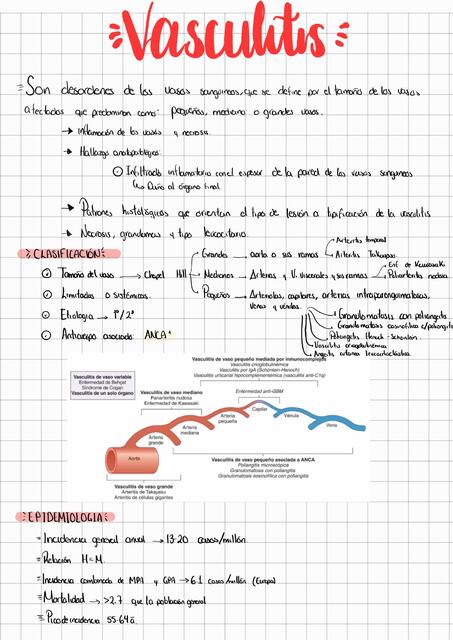 Vasculitis
Son desordenes de los vasos sanguineos, que se define por el tamaño de los vasos
afectados que predominan como: pequeños, mediano o grandes vasos.
→ inflamación de los vasos y necrosis.
→ Hallazgo anatopatológico:
Infiltrado inflamatorio con el espesor de la pared de los vasos sanguineos
↳ Daño al órgano final
→ Patrones histológicos que orientan el tipo de lesión a tipificación de la vasculitis
→ Necrosis, granulomas y tipo leucocitario.
CLASIFICACIÓN:
Tamaño del vaso → Chapel Hill
Grande → aorta o sus ramas
Arteritis temporal
Arteritis Takayasu
Medianos → Arterias y V. viscerales y sus ramas
Enf. de Kawasaki
Poliarteritis nodosa
Pequeños → Arteriolas, capilares, arterias intraparenquimatosas,
venas y vénulas.
Granulomatosis con poliangitis
Granulomatosis eosinofilica c/poliangitis
Poliangitis Henoch-Schönlein
Vasculitis crioglobulinémica
Angitis cutánea leucocitoclástica
Limitadas o sistémicas.
Etiología → 1ª/2ª
Anticuerpo asociado: ANCA+
Vasculitis de vaso pequeño mediada por inmunocomplejos
Vasculitis crioglobulinémica
Vasculitis por IgA (Schönlein-Henoch)
Vasculitis urticarial hipocomplementémica (vasculitis anti-C1q)
Vasculitis de vaso variable
Enfermedad de Behçet
Síndrome de Cogan
Vasculitis de un solo órgano
Vasculitis de vaso mediano
Panarteritis nudosa
Enfermedad de Kawasaki
Enfermedad anti-GBM
Aorta
Arteria grande
Arteria mediana
Arteria pequeña
Capilar
Vénula
Vena
Vasculitis de vaso pequeño asociada a ANCA
Poliangitis microscópica
Granulomatosis con poliangitis
Granulomatosis eosinofílica con poliangitis
Vasculitis de vaso grande
Arteritis de Takayasu
Arteritis de células gigantes
EPIDEMIOLOGIA:
Incidencia general anual → 13-20 casos/millón.
Relación H=M.
Incidencia combinada de MPA y GPA → 6.1 casos/millón (Europa)
Mortalidad → >2.7 que la población general
Pico de incidencia 55-64 a.